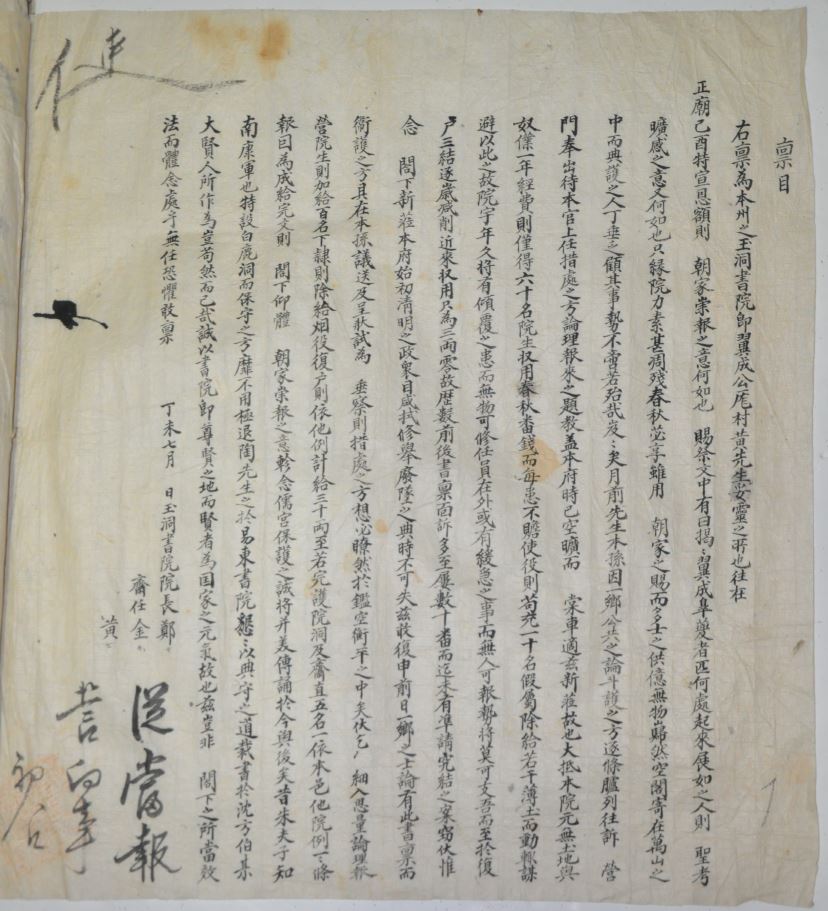 稟目
右稟爲本州之玉洞書院卽翼成公厖村黃先生妥靈之所也往在
正廟己酉特宣恩額則 朝家崇報之意何如也 賜祭文中有曰揭揭翼成皐夔者匹何處起來展如之人則 聖考
曠感之意又何如也只緣院力素甚凋殘春秋苾享雖用 朝家之賜而多士之供億無物當賂然空閣寄在萬山之
中而典護之人丁垂之顧其事勢不啻若殆哉岌岌矣月前先生本孫因一鄕公共之論斗護之方逐條臚列往訴 營
門奉出待本官上任措處之方論理報來之題敎盖本府時已空曠而 棠車適玆新莅故也大抵本院元無土地與
奴僕一年經費則僅得六十名院生收用春秋番錢而每患不贍使役則苟充一十名假屬除給若干薄土而動輒謀
避以此之故院宇年久將有傾覆之患而無物可修任員在外或有緩急之事而無人可報勢將莫可支吾而至於復
戶三結逐歲减削近來收用只爲三兩零故歷數前後書稟面訴多至屢數十番而迄未有準請完結之案竊伏惟
念 閤下新莅本府始初淸明之政衆目咸拭修擧廢墜之典時不可失玆敢復申前日一鄕之士論有此書稟而
衛護之方具在本孫議送及呈狀試爲 垂察則措處之方想必瞭然於鑑空衡平之中矣伏乞 細入思量論理報
營院生則加給百名下隷則除給烟役復戶則依他例計給三十兩至若完護院洞及齋直五名一依本邑他院例一一條
報因爲成給完文則 閤下仰體 朝家崇報之意軫念儒宮保護之誠將幷美傳誦於今與後矣昔朱夫子知
南康軍也特設白鹿洞而保守之方靡不用極退陶先生之於易東書院懇懇以典守之道載書於沈方伯其
大賢人所作爲豈苟然而已哉誠以書院卽尊賢之地而賢者爲国家之元氣故也玆豈非 閤下之所當效
法而體念處乎無任恐懼敢稟
丁未七月 日玉洞書院院長鄭
齋任金
黃
從當報
營向事
初八日
使